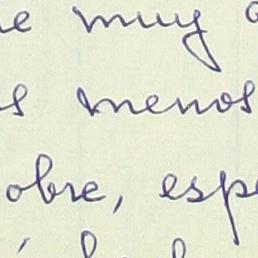 e muy
s menos
obre, espe